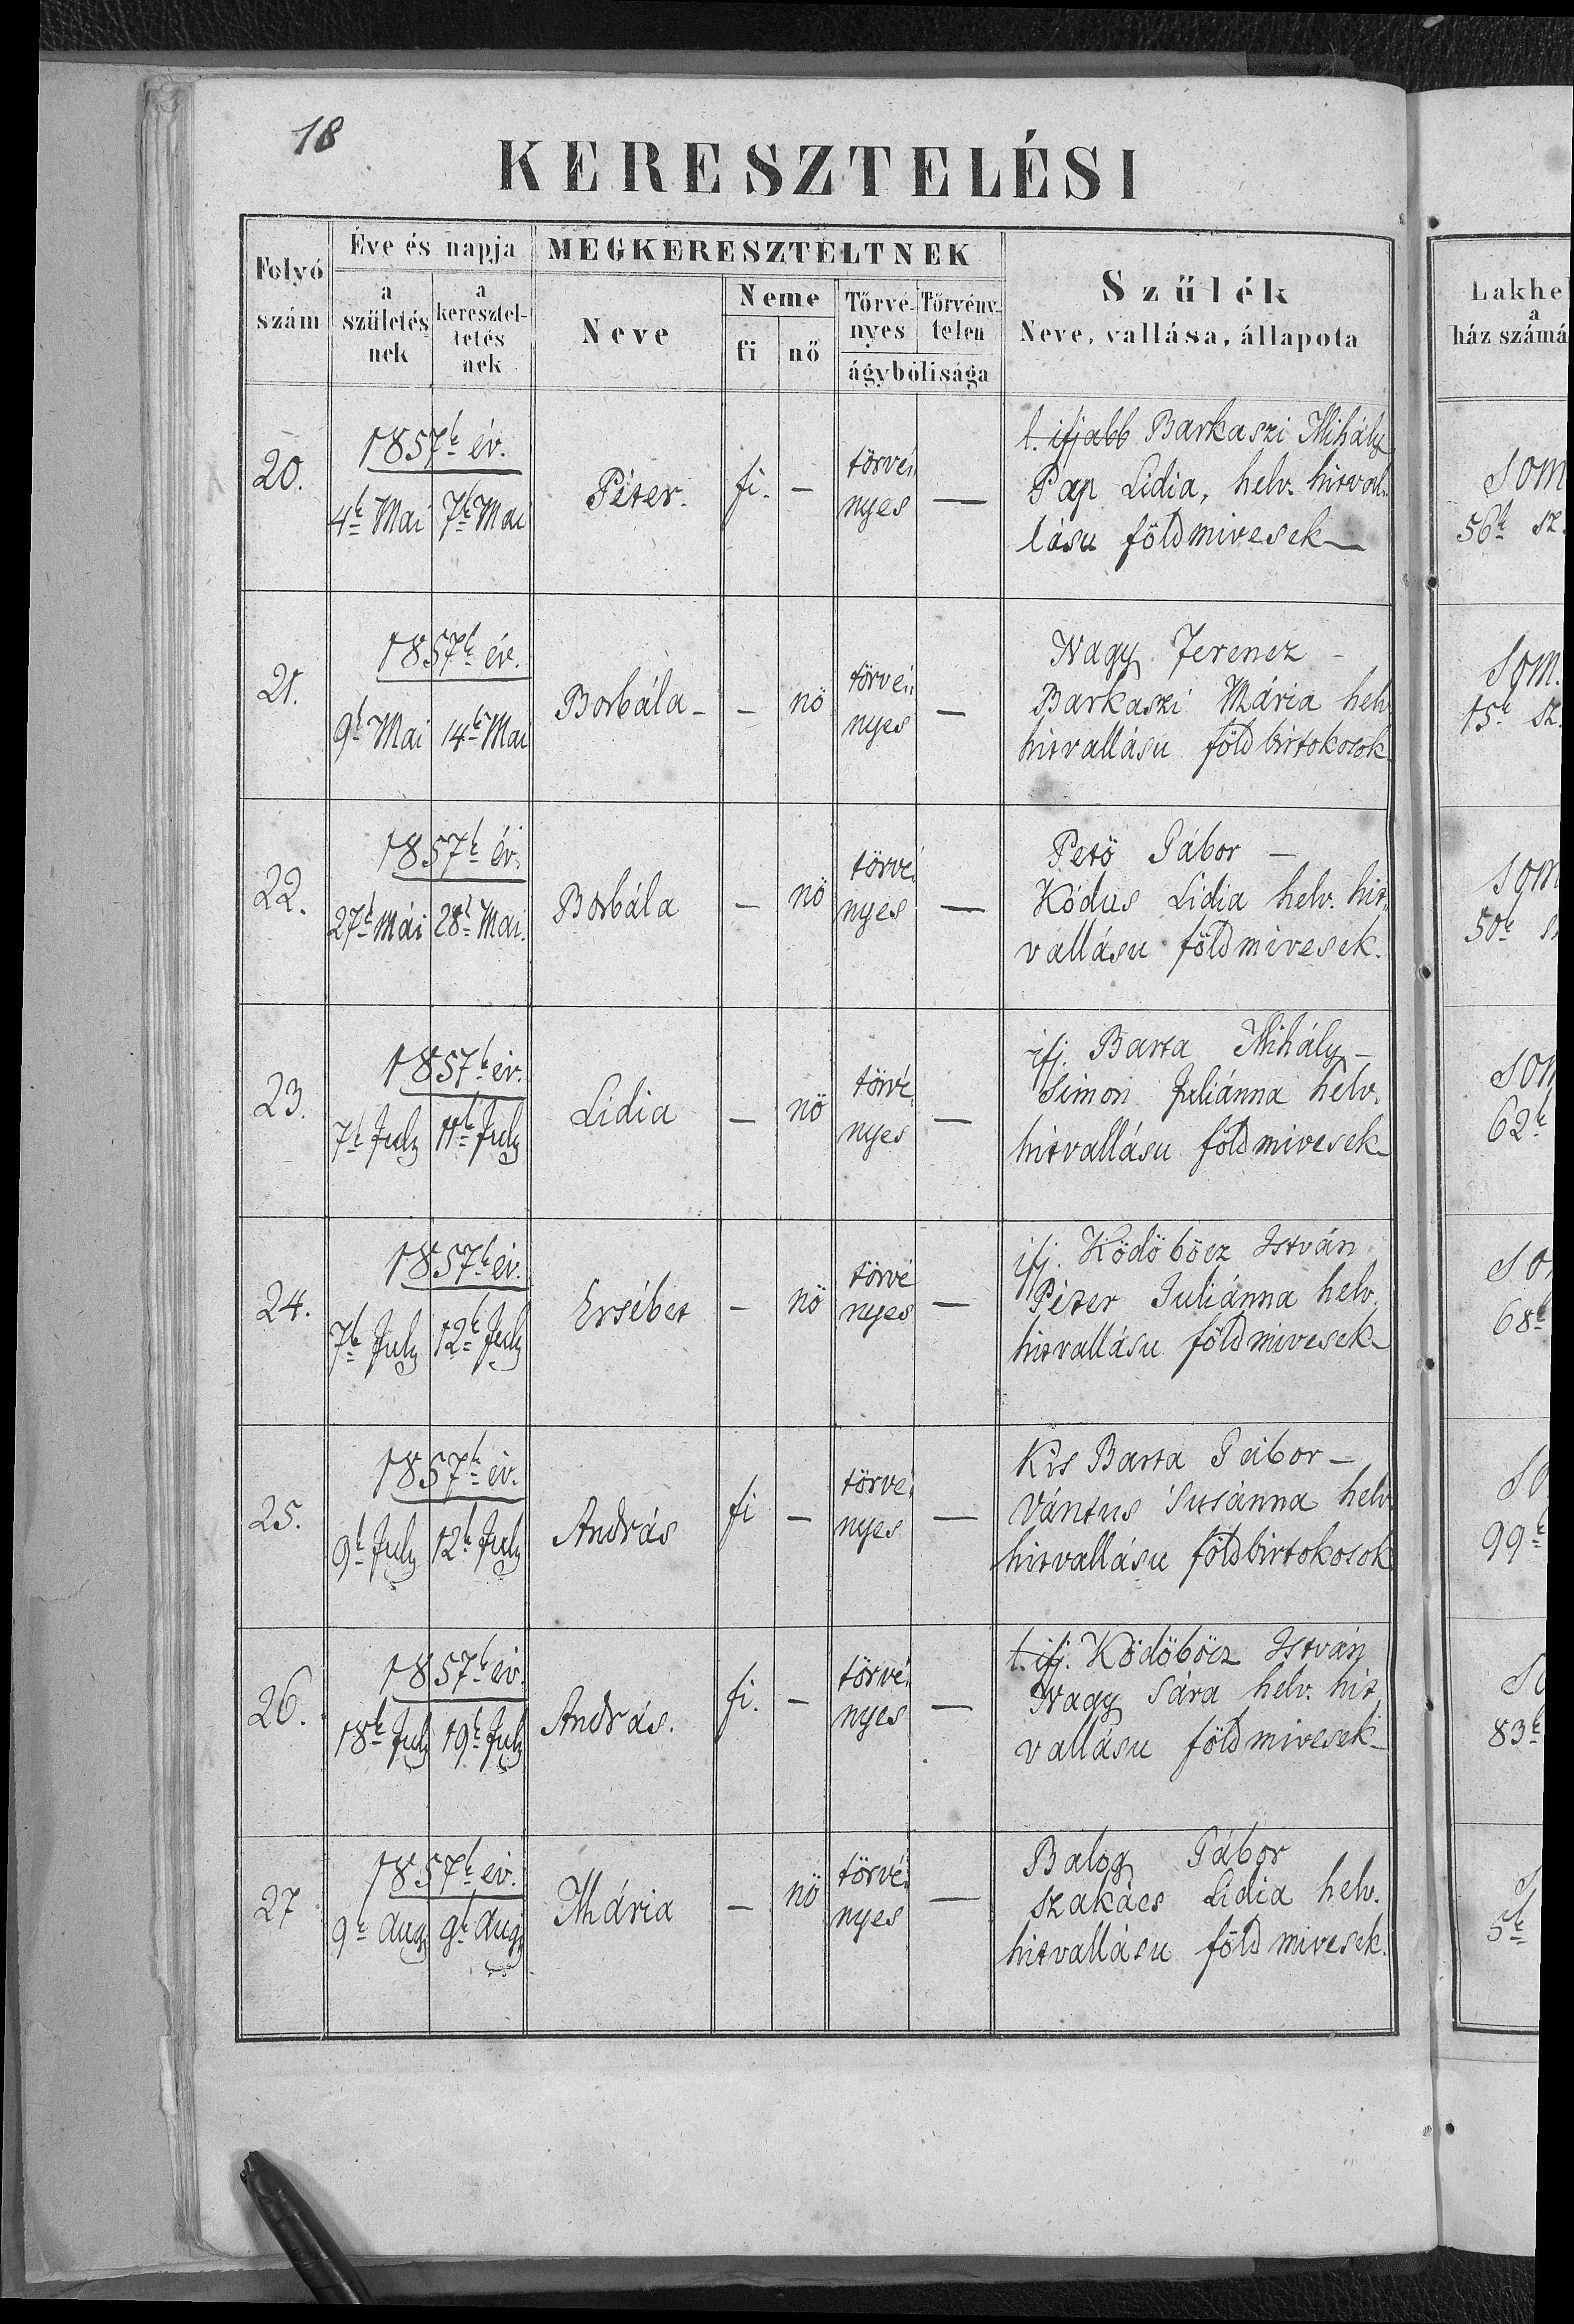 18
KERESZTELÉSI
Folyó szám
Éve és napja
a születés nek
a keresztel- tetés nek
MEGKERESZTELTNEK
Neve
Neme
fi
nő
Törvé- nyes
Törvény- telen
ágybólisága
Szűlék
Neve, vallása, állapota
Lakhe
a
ház számá
20.
1857k év.
4k Mai 7k Mai
Péter. fi. — törvé nyes —
l. ifjabb Barkaszi Mihály
Pap Lidia, helv. hitval
lásu földmivesek —
Som
56k sz.
21.
1857k év.
9k Mai 14k Mai
Borbála — — nö törvé nyes —
Nagy Ferencz —
Barkaszi Mária helv
hitvallásu földbirtokosok
Som.
15k sz.
22.
1857k év.
27k Mái 28k Mai.
Borbála — nö törvé nyes —
Pető Gábor —
Kódus Lidia helv. hit
vallásu földmivesek.
Som
50k
23.
1857k év.
7k July 11k July
Lidia — nö törvé nyes —
ifj. Barta Mihály —
Simon Juliánna helv.
hitvallásu földmivesek
Som
62k
24.
1857k év.
7k July 12k July
Ersébet — nö törvé nyes —
ifj. Ködöböcz István
Péter Juliánna helv.
hitvallásu földmivesek
So
68k
25.
1857k év.
9k July 12k July
András fi — törvé nyes —
Kis Barta Gábor —
Vántus Susánna helv
hitvallásu földbirtokosok
So
99k
26.
1857k év.
18k July 19k July
András. fi. — törvé nyes —
l. ifj. Ködöböcz István
Nagy Sára helv. hit
vallásu földmivesek
So
83k
27
1857k év.
9k Aug 9k Aug
Mária — nö törvé nyes —
Balog Gábor
Szakács Lidia helv.
hitvallásu földmivesek.
S
5k